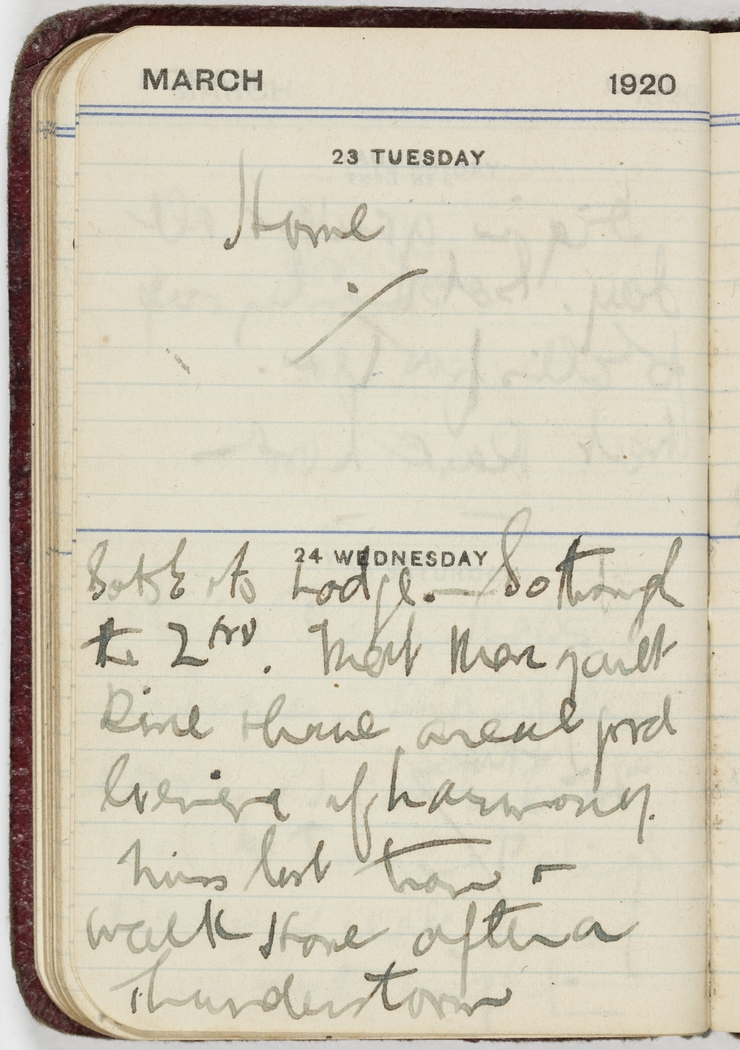 MARCH 1920
23 TUESDAY
Home
24 WEDNESDAY
to Lodge. — Go through
the 2nd. Meet
& have a real good
Evening of harmony.
Miss last tram &
walk Home after a
thunderstorm